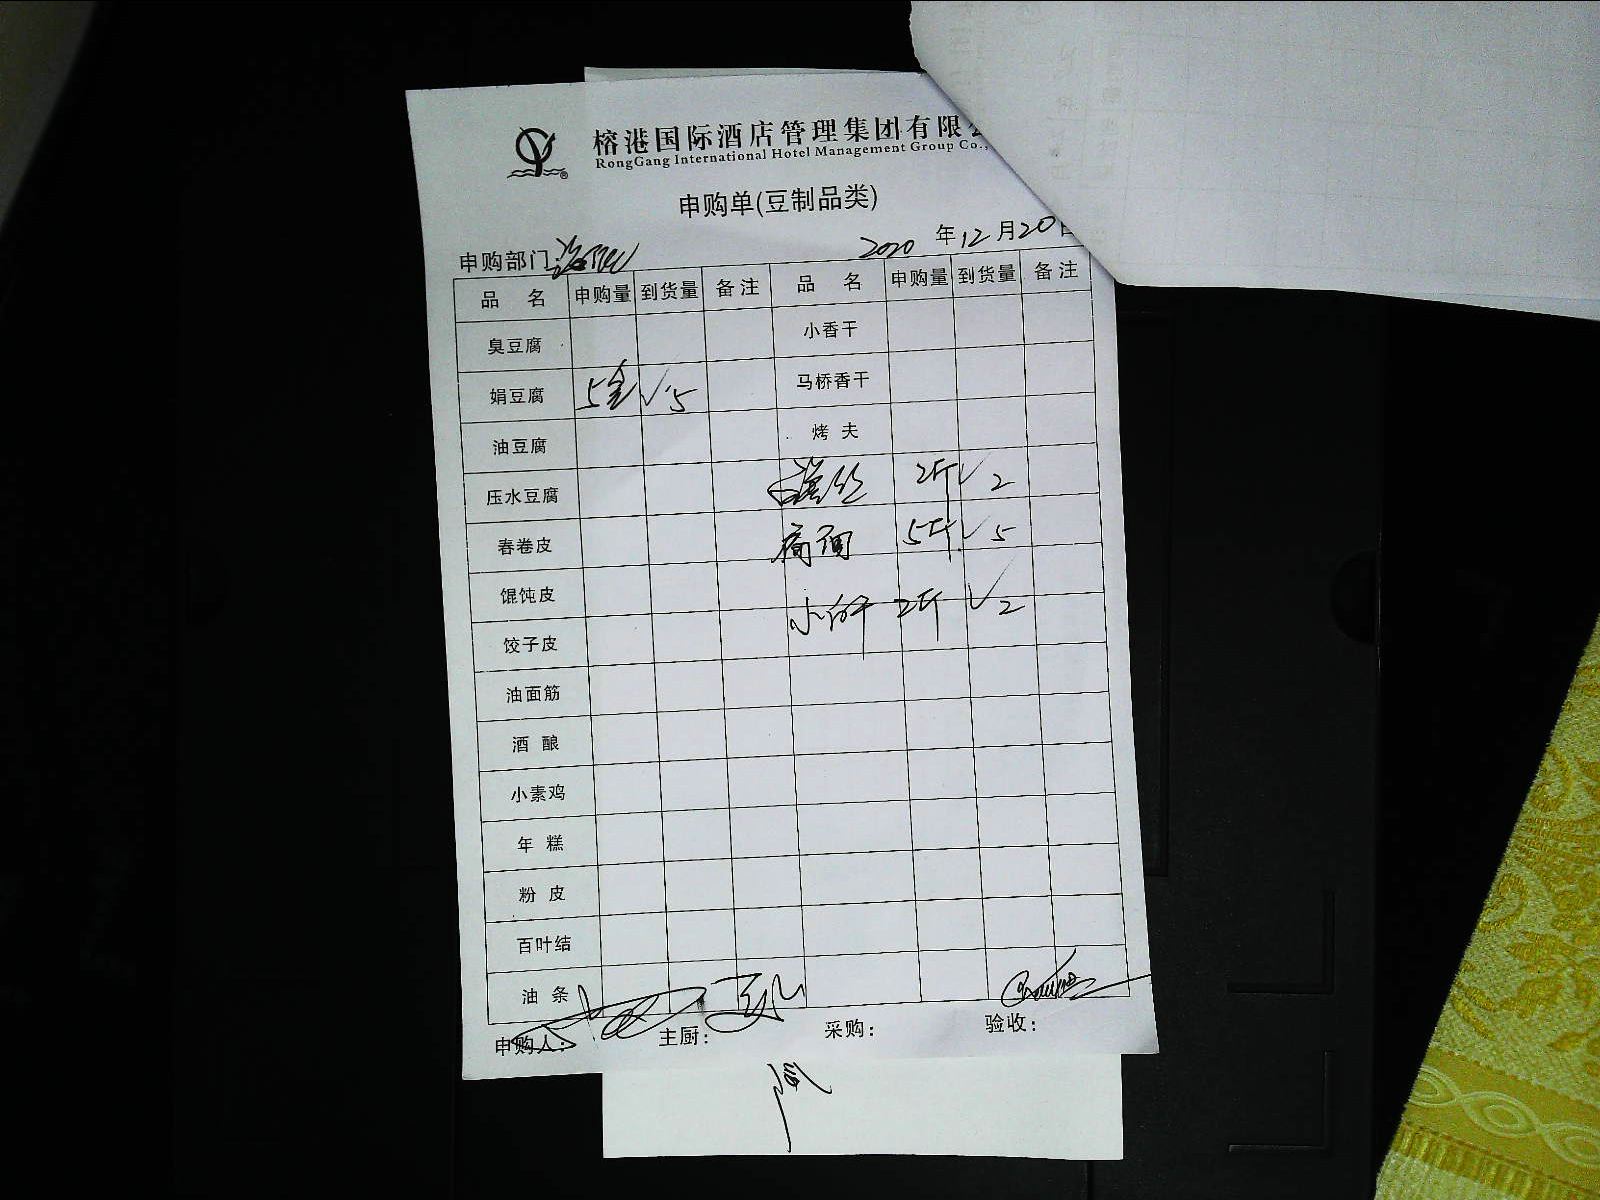 榕港国际酒店管理集团有限
RongGang International Hotel Management Group Co.,
申购单(豆制品类)
申购部门: 2020 年 12 月 20 日
品 名 申购量 到货量 备注 品 名 申购量 到货量 备注
臭豆腐 小香干
娟豆腐 5盒 √5 马桥香干
油豆腐 烤 夫
压水豆腐 2斤 √2
春卷皮 5斤 √5
馄饨皮 2斤 √2
饺子皮
油面筋
酒 酿
小素鸡
年 糕
粉 皮
百叶结
油 条
申购人: 主厨: 采购: 验收: